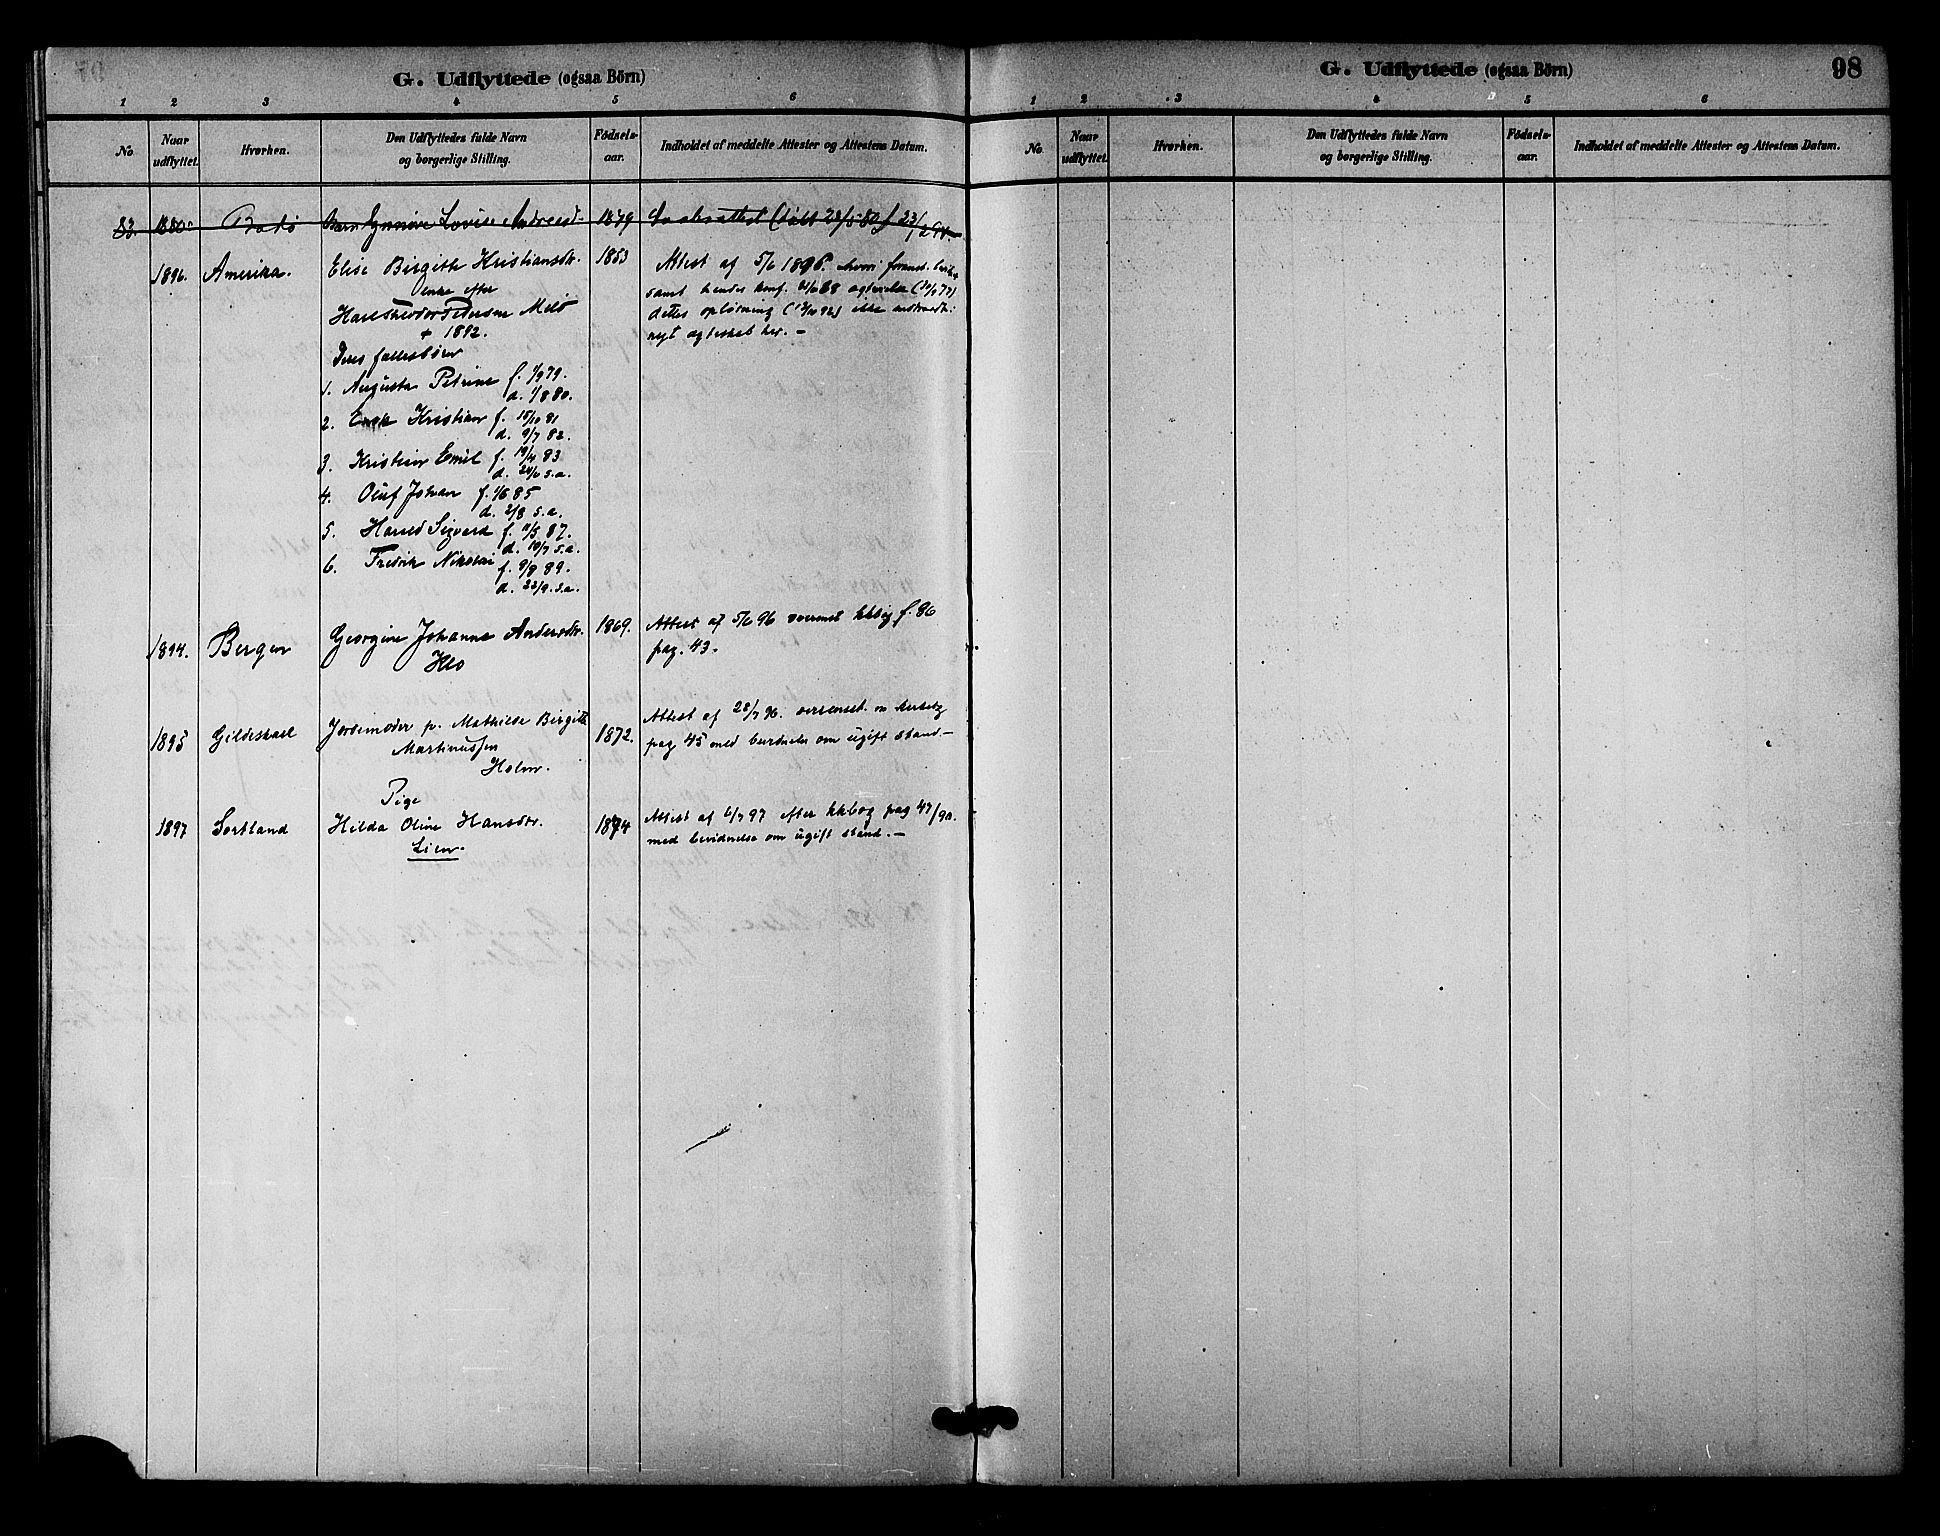 G. Udflyttede (ogsaa Börn)
1 2 3 4 5 6
No
Naar udflyttet.
Hvorhen.
Den Udflyttedes fulde Navn
og borgerlige Stilling.
Födsels-
aar.
Indholdet af meddelte Attester og Attestens Datum.
83. 1880 Bodø Barn Lovise Andreasd. 1879
1896. Amerika. Elise Birgitte Kristiansdr. 1853 Attest af 5/6 1896. hvori
Enke efter
samt hendes konf.
Pedersen Melö
dettes opløsning
+ 1892.
nyt ægteskab her. –
Deres fællesbörn
1. Augusta Petrine f. 1/9 79.
d. 1/8 80.
2. Kristian f. 15/10 81
d. 9/7 82.
3. Kristian Emil f. 19/4 83
d. 24/6 s.a.
4. Oluf Johan f. 1/6 85
d. 2/8 s.a.
5. Sigvard f. 11/5 87.
d. 19/7 s.a.
6. Fredrik Nikolai f. 9/8 89.
d. 23/9. s.a.
1894. Bergen Georgine Johanna Andersdr. 1869. Attest af 5/6 96 kkbog f. 86
Klo
pag. 43.
1895 Gildeskaal Jordemoder p. Mathilde Birgitte 1872. Attest af 28/7 96.
Martinussen
pag 45 med om ugift stand. –
Holm.
Pige
1897 Sortland Hilda Oline Hansdr. 1874 Attest af 6/7 97 efter kkbog pag 47/90.
Lien.
med bevidnelse om ugift stand. –
G. Udflyttede (ogsaa Börn)
98
1 2 3 4 5 6
No
Naar
udflyttet.
Hvorhen.
Den Udflyttedes fulde Navn
og borgerlige Stilling.
Födsels-
aar.
Indholdet af meddelte Attester og Attestens Datum.